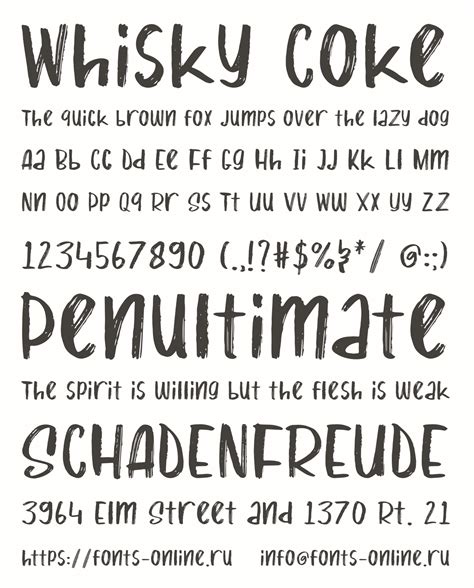 Whisky Coke
The quick brown fox jumps over the lazy dog
Aa Bb Cc Dd Ee Ff Gg Hh Ii Jj Kk Ll Mm
Nn Oo Pp Qq Rr Ss Tt Uu Vv Ww Xx Yy Zz
1234567890 (.,!?#$%&*/ @:;)
Penultimate
The spirit is willing but the flesh is weak
SCHADENFREUDE
3964 Elm Street and 1370 Rt. 21
https://fonts-online.ru info@fonts-online.ru